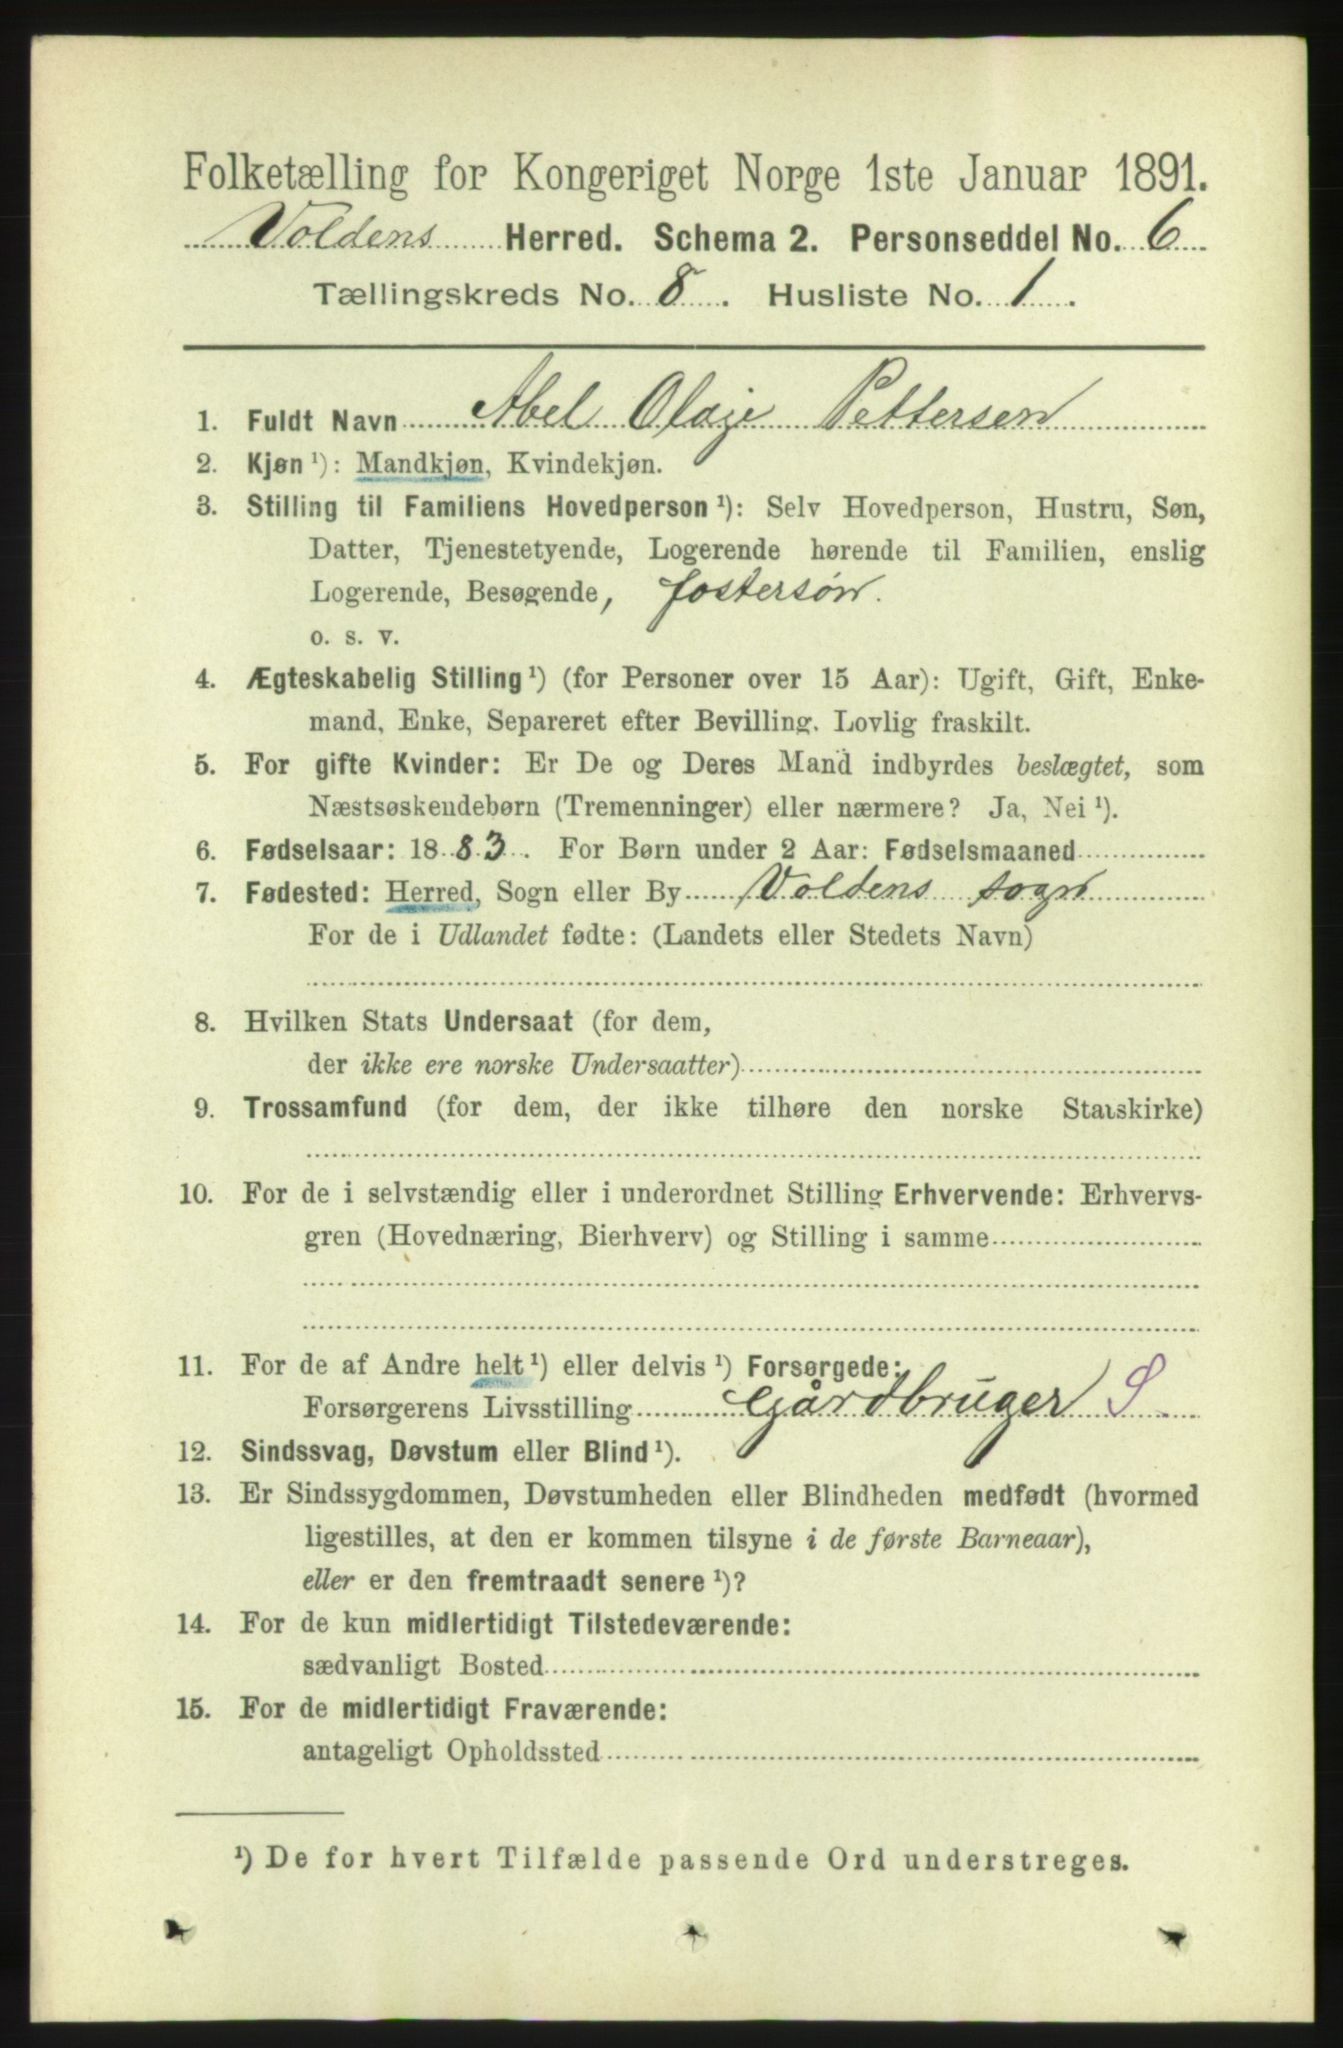 Folketælling for Kongeriget Norge 1ste Januar 1891.
Voldens Herred. Schema 2. Personseddel No. 6
Tællingskreds No. 8. Husliste No. 1.
1. Fuldt Navn Abel Olaje Pettersen
2. Kjøn ¹): Mandkjøn, Kvindekjøn.
3. Stilling til Familiens Hovedperson ¹): Selv Hovedperson, Hustru, Søn,
Datter, Tjenestetyende, Logerende hørende til Familien, enslig
Logerende, Besøgende, fostersøn.
o. s. v.
4. Ægteskabelig Stilling ¹) (for Personer over 15 Aar): Ugift, Gift, Enke-
mand, Enke, Separeret efter Bevilling. Lovlig fraskilt.
5. For gifte Kvinder: Er De og Deres Mand indbyrdes beslægtet, som
Næstsøskendebørn (Tremenninger) eller nærmere? Ja, Nei ¹).
6. Fødselsaar: 1883. For Børn under 2 Aar: Fødselsmaaned
7. Fødested: Herred, Sogn eller By Voldens sogn
For de i Udlandet fødte: (Landets eller Stedets Navn)
8. Hvilken Stats Undersaat (for dem,
der ikke ere norske Undersaatter)
9. Trossamfund (for dem, der ikke tilhøre den norske Statskirke)
10. For de i selvstændig eller i underordnet Stilling Erhvervende: Erhvervs-
gren (Hovednæring, Bierhverv) og Stilling i samme
11. For de af Andre helt ¹) eller delvis ¹) Forsørgede:
Forsørgerens Livsstilling Gårdbruger S
12. Sindssvag, Døvstum eller Blind ¹).
13. Er Sindssygdommen, Døvstumheden eller Blindheden medfødt (hvormed
ligestilles, at den er kommen tilsyne i de første Barneaar),
eller er den fremtraadt senere ¹)?
14. For de kun midlertidigt Tilstedeværende:
sædvanligt Bosted
15. For de midlertidigt Fraværende:
antageligt Opholdssted
¹) De for hvert Tilfælde passende Ord understreges.